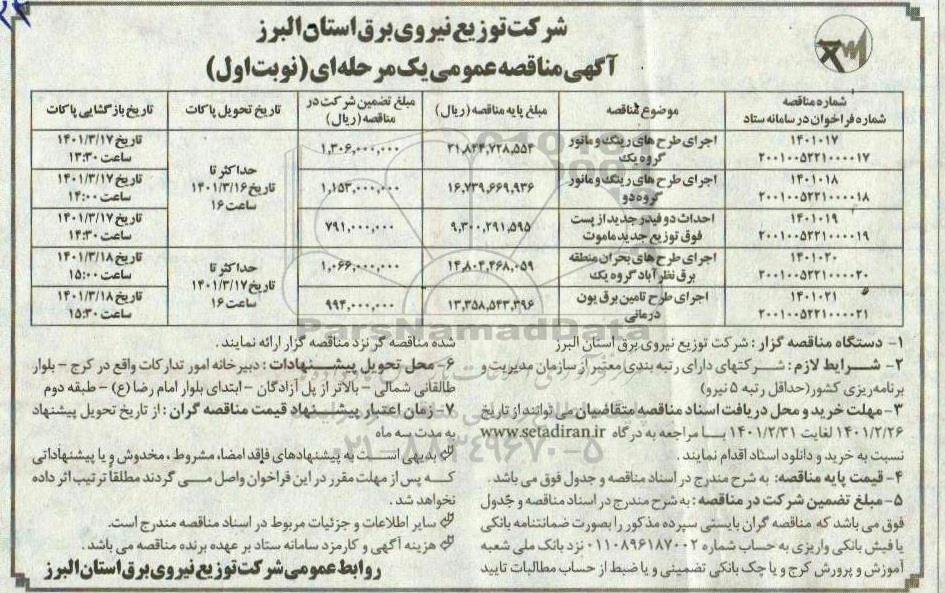 شرکت توزیع نیروی برق استان البرز
آگهی مناقصه عمومی یک مرحله‌ای (نوبت اول)
شماره مناقصه
شماره فراخوان در سامانه ستاد
موضوع مناقصه
مبلغ پایه مناقصه (ریال)
مبلغ تضمین شرکت در
مناقصه (ریال)
تاریخ تحویل پاکات
تاریخ بازگشایی پاکات
۱۴۰۱۰۱۷
۲۰۰۱۰۰۵۲۲۱۰۰۰۰۱۷
اجرای طرح های رینگ و مانور
گروه یک
۲۱,۸۲۴,۷۲۸,۵۵۴
۱,۳۰۶,۰۰۰,۰۰۰
تاریخ ۱۴۰۱/۳/۱۷
ساعت ۱۳:۳۰
۱۴۰۱۰۱۸
۲۰۰۱۰۰۵۲۲۱۰۰۰۰۱۸
اجرای طرح های رینگ و مانور
گروه دو
۱۶,۷۳۹,۶۶۹,۹۳۶
۱,۱۵۳,۰۰۰,۰۰۰
حداکثر تا
تاریخ ۱۴۰۱/۳/۱۶
ساعت ۱۶
تاریخ ۱۴۰۱/۳/۱۷
ساعت ۱۴:۰۰
۱۴۰۱۰۱۹
۲۰۰۱۰۰۵۲۲۱۰۰۰۰۱۹
احداث دو فیدر جدید از پست
فوق توزیع جدید ماموت
۹,۳۰۰,۲۹۱,۵۹۵
۷۹۱,۰۰۰,۰۰۰
تاریخ ۱۴۰۱/۳/۱۷
ساعت ۱۴:۳۰
۱۴۰۱۰۲۰
۲۰۰۱۰۰۵۲۲۱۰۰۰۰۲۰
اجرای طرح های بحران منطقه
برق نظرآباد گروه یک
۱۴,۸۰۴,۴۶۸,۰۵۹
۱,۰۶۶,۰۰۰,۰۰۰
حداکثر تا
تاریخ ۱۴۰۱/۳/۱۷
ساعت ۱۶
تاریخ ۱۴۰۱/۳/۱۸
ساعت ۱۵:۰۰
۱۴۰۱۰۲۱
۲۰۰۱۰۰۵۲۲۱۰۰۰۰۲۱
اجرای طرح تامین برق یون
درمانی
۱۳,۳۵۸,۵۴۳,۳۹۶
۹۹۴,۰۰۰,۰۰۰
تاریخ ۱۴۰۱/۳/۱۸
ساعت ۱۵:۳۰
۱- دستگاه مناقصه گزار : شرکت توزیع نیروی برق استان البرز
۲- شرایط لازم : شرکتهای دارای رتبه بندی معتبر از سازمان مدیریت و
برنامه‌ریزی کشور (حداقل رتبه ۵ نیرو)
۳- مهلت خرید و محل دریافت اسناد مناقصه متقاضیان می توانند از تاریخ
۱۴۰۱/۲/۲۶ لغایت ۱۴۰۱/۲/۳۱ با مراجعه به درگاه www.setadiran.ir
نسبت به خرید و دانلود اسناد اقدام نمایند .
۴- قیمت پایه مناقصه: به شرح مندرج در اسناد مناقصه و جدول فوق می باشد .
۵- مبلغ تضمین شرکت در مناقصه : به شرح مندرج در اسناد مناقصه و جدول
فوق می باشد که مناقصه گران بایستی سپرده مذکور را بصورت ضمانتنامه بانکی
یا فیش بانکی واریزی به حساب شماره ۰۱۱۰۸۹۶۱۸۷۰۰۲ نزد بانک ملی شعبه
آموزش و پرورش کرج و یا چک بانکی تضمینی و یا ضبط از حساب مطالبات تایید
شده مناقصه گر نزد مناقصه گزار ارائه نمایند .
۶- محل تحویل پیشنهادات : دبیرخانه امور تدارکات واقع در کرج - بلوار
طالقانی شمالی - بالاتر از پل آزادگان - ابتدای بلوار امام رضا (ع) - طبقه دوم
۷- زمان اعتبار پیشنهاد قیمت مناقصه گران : از تاریخ تحویل پیشنهاد
به مدت سه ماه
بدیهی است به پیشنهادهای فاقد امضا، مشروط ، مخدوش و یا پیشنهاداتی
که پس از مهلت مقرر در این فراخوان واصل می گردند مطلقاً ترتیب اثر داده
نخواهد شد .
سایر اطلاعات و جزئیات مربوط در اسناد مناقصه مندرج است.
هزینه آگهی و کارمزد سامانه ستاد بر عهده برنده مناقصه می باشد .
روابط عمومی شرکت توزیع نیروی برق استان البرز
ParsNamadData
۰۲۱-۸۸۳۴۹۶۷۰-۵